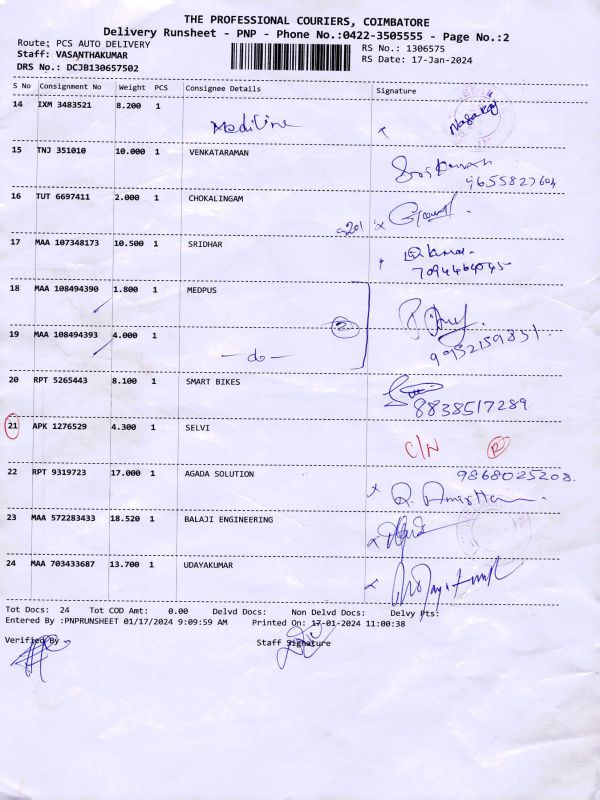 THE PROFESSIONAL COURIERS, COIMBATORE
Delivery Runsheet - PNP - Phone No.:0422-3505555 - Page No.:2
Route: PCS AUTO DELIVERY
RS No.: 1306575
Staff: VASANTHAKUMAR
RS Date: 17-Jan-2024
DRS No.: DCJB130657502
S No Consignment No Weight PCS Consignee Details Signature
14 IXM 3483521 8.200 1
15 TNJ 351010 10.000 1 VENKATARAMAN
9655827604
16 TUT 6697411 2.000 1 CHOKALINGAM
17 MAA 107348173 10.500 1 SRIDHAR
7094464045
18 MAA 108494390 1.800 1 MEDPUS
2
19 MAA 108494393 4.000 1
- do -
9952159831.
20 RPT 5265443 8.100 1 SMART BIKES
8838517289.
21 APK 1276529 4.300 1 SELVI
C/N
22 RPT 9319723 17.000 1 AGADA SOLUTION
9868025208.
23 MAA 572283433 18.520 1 BALAJI ENGINEERING
24 MAA 703433687 13.700 1 UDAYAKUMAR
Tot Docs: 24 Tot COD Amt: 0.00 Delvd Docs: Non Delvd Docs: Delvy Pts:
Entered By :PNPRUNSHEET 01/17/2024 9:09:59 AM Printed On: 17-01-2024 11:00:38
Verified By
Staff Signature